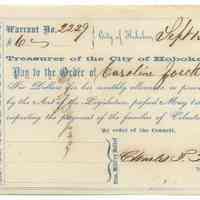 Warrant No. 2229
City of Hoboken, Sept 1
$ 6
Treasurer of the City of Hoboke
Pay to the Order of Caroline
Six Dollars for her monthly allowance, as pr
by the Act of the Legislature, passed May 1
respecting the payment of the families of Volunte
By order of the Council,
Charles